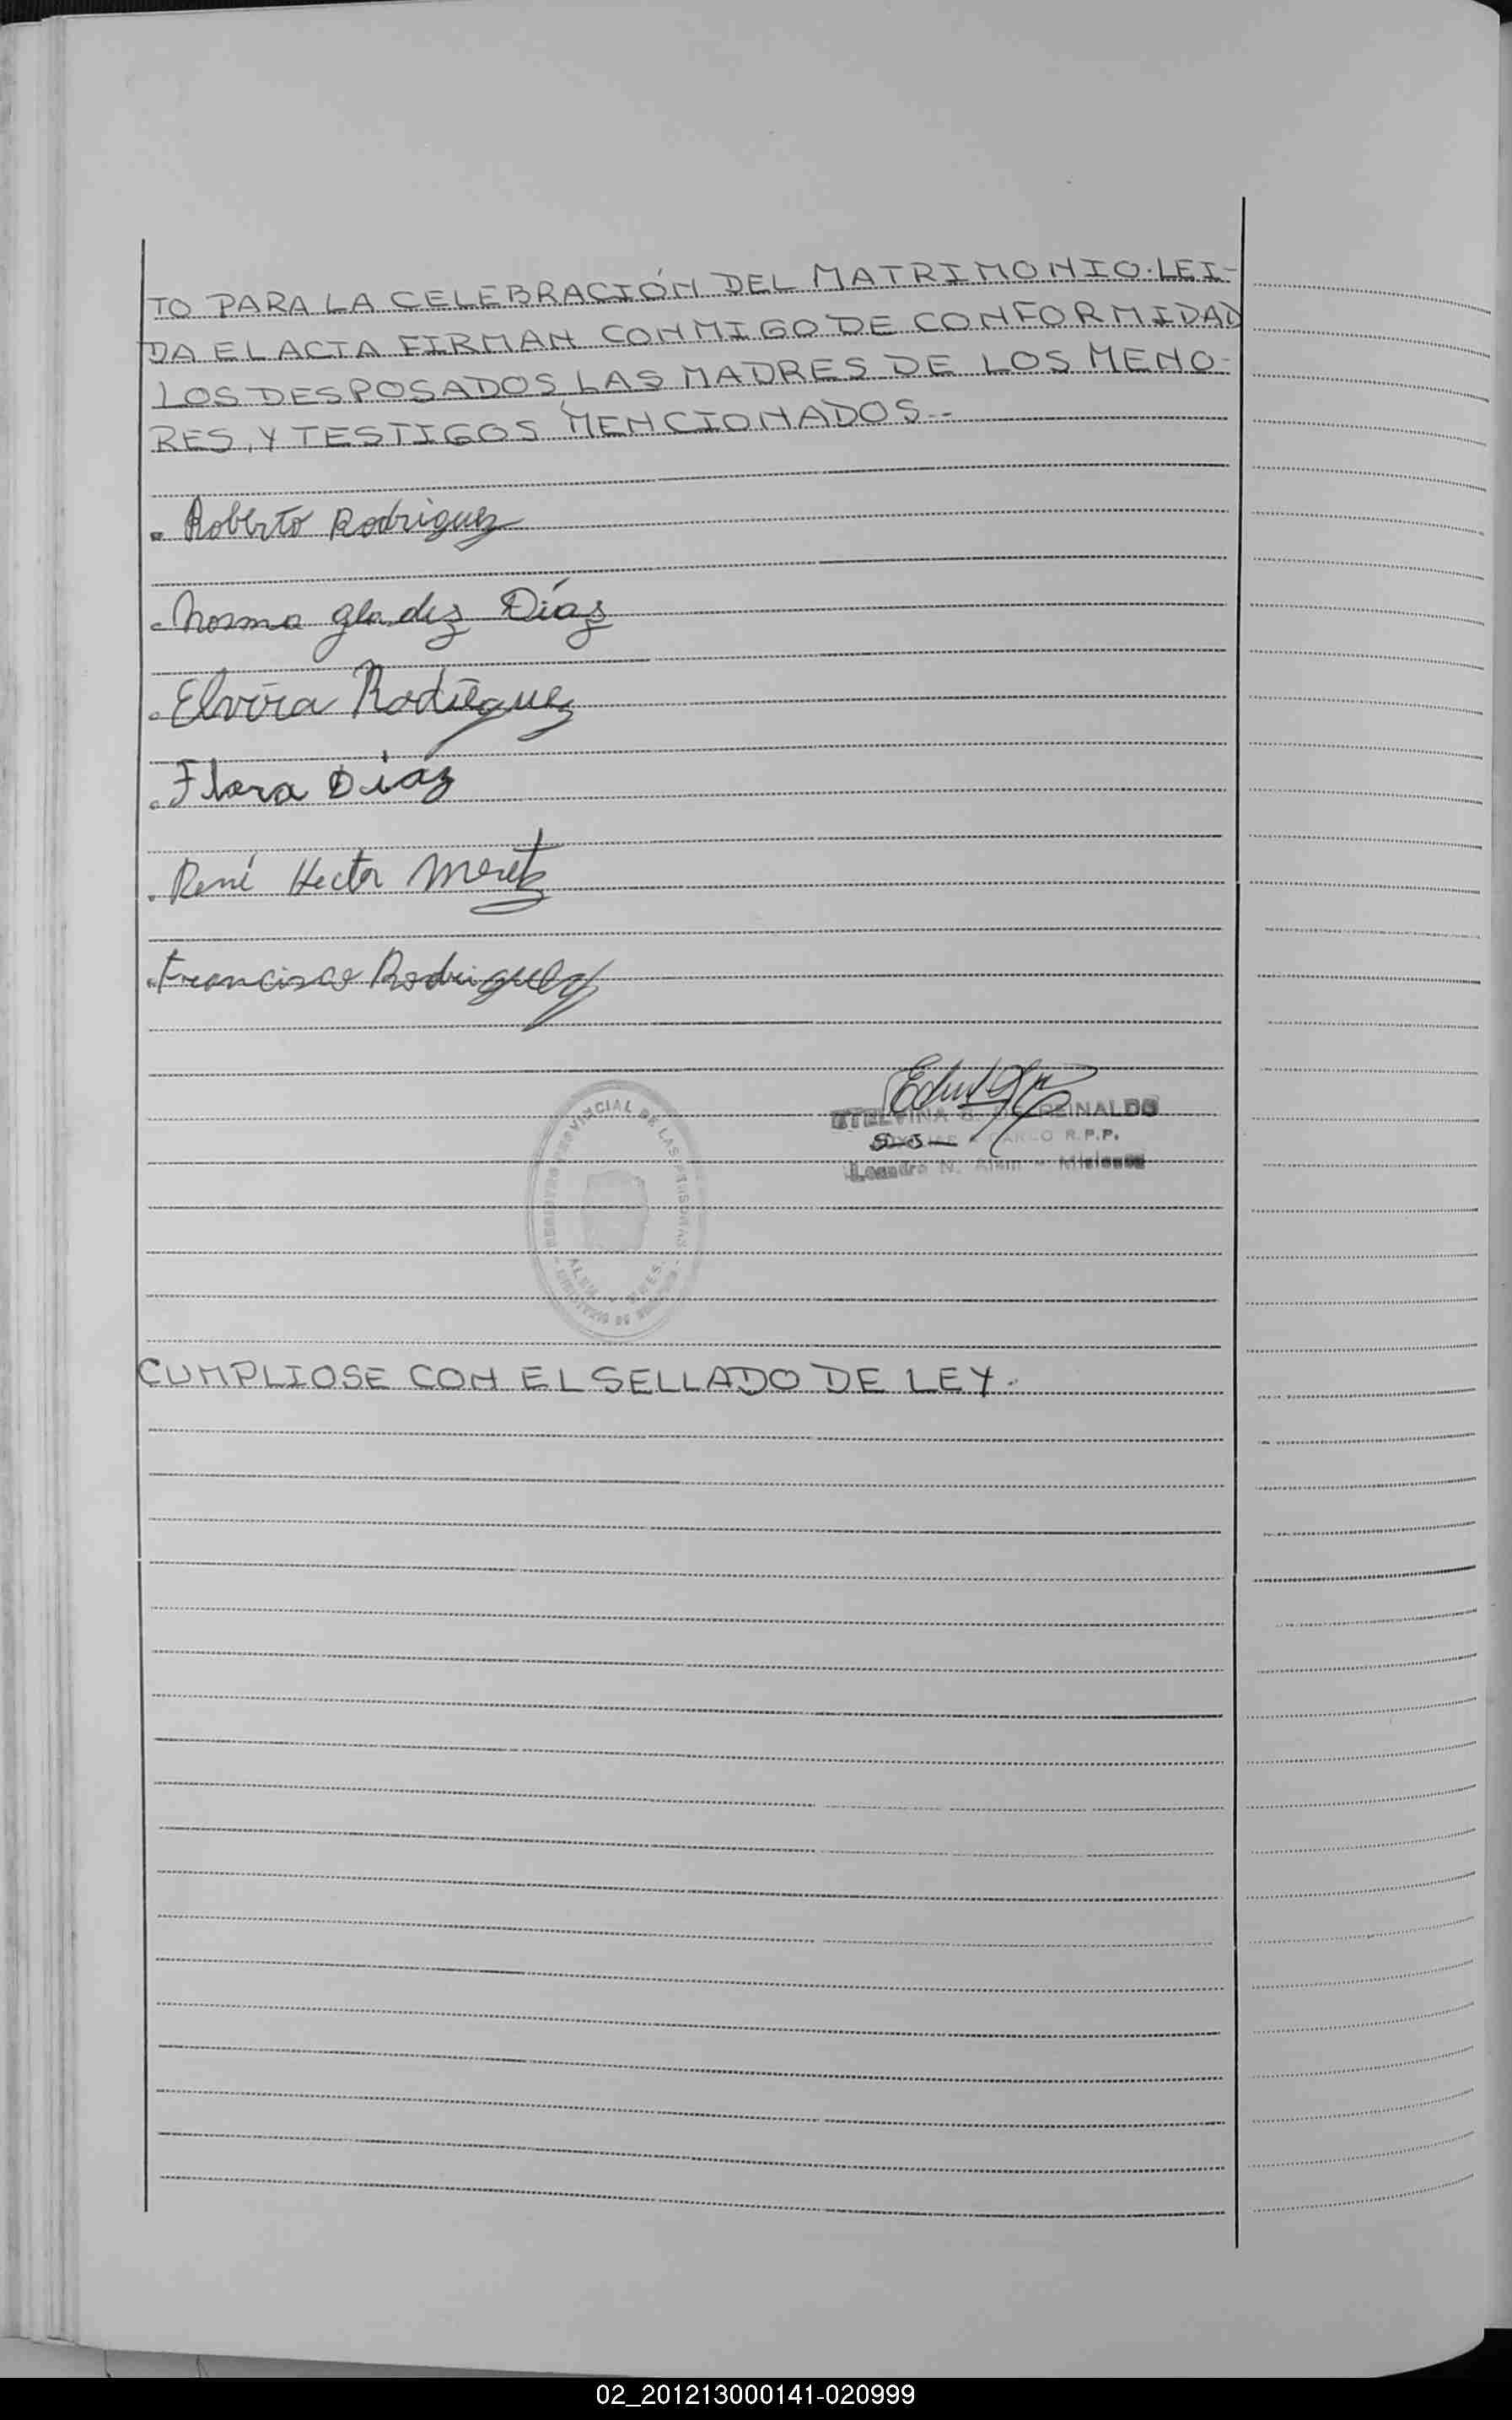 TO PARA LA CELEBRACIÓN DEL MATRIMONIO. LEI-
DA EL ACTA FIRMAN CONMIGO DE CONFORMIDAD
LOS DESPOSADOS, LAS MADRES DE LOS MENO-
RES, Y TESTIGOS MENCIONADOS.-
Roberto Rodriguez
Norma Gladez Díaz
Elvira Rodríguez
Flora Díaz
René Hector Meretz
Francisco Rodriguez
ETELVINA G. DE REINALDO
CARGO R.P.P.
Leandro N. Alem - Misiones
REGISTRO PROVINCIAL DE LAS PERSONAS
ALEM MNES.
CUMPLIOSE CON EL SELLADO DE LEY.
02_201213000141-020999